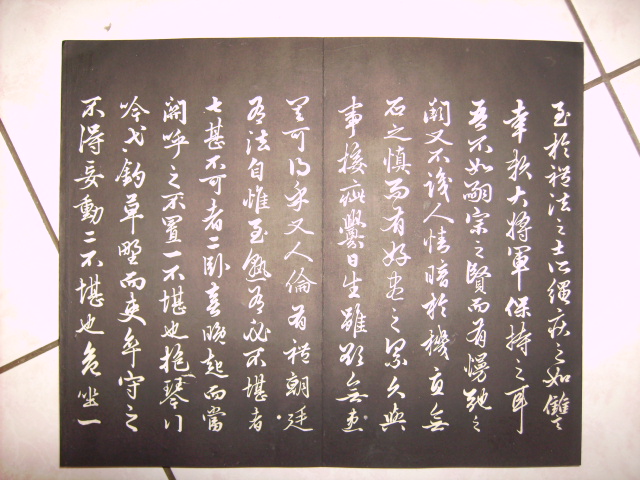 至於禮法之士所繩疾之如讎
幸賴大將軍保持之耳
吾不如嗣宗之賢而有慢弛之
闕又不識人情暗於機宜無
石之慎而有好盡之累久與
事接疵釁日生雖欲無患
其可得乎又人倫有禮朝廷
有法自惟至熟有必不堪者
七甚不可者二臥喜晚起而當
關呼之不置一不堪也抱琴行
吟弋釣草野而吏卒守之
不得妄動二不堪也危坐一